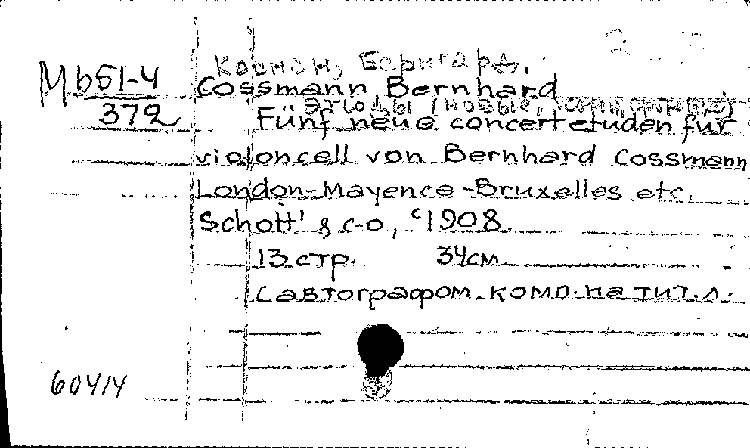 Косман, Бернгард.
Мb51-4 Cossmann Bernhard
Этюды (новые, концертные)
372 Fünf neue concertetuden für
violoncell von Bernhard Cossmann
London-Mayence-Bruxelles etc.
Schott' & c-o, c1908.
13 стр. 34 см.
С автографом комп. на тит. л.
60414